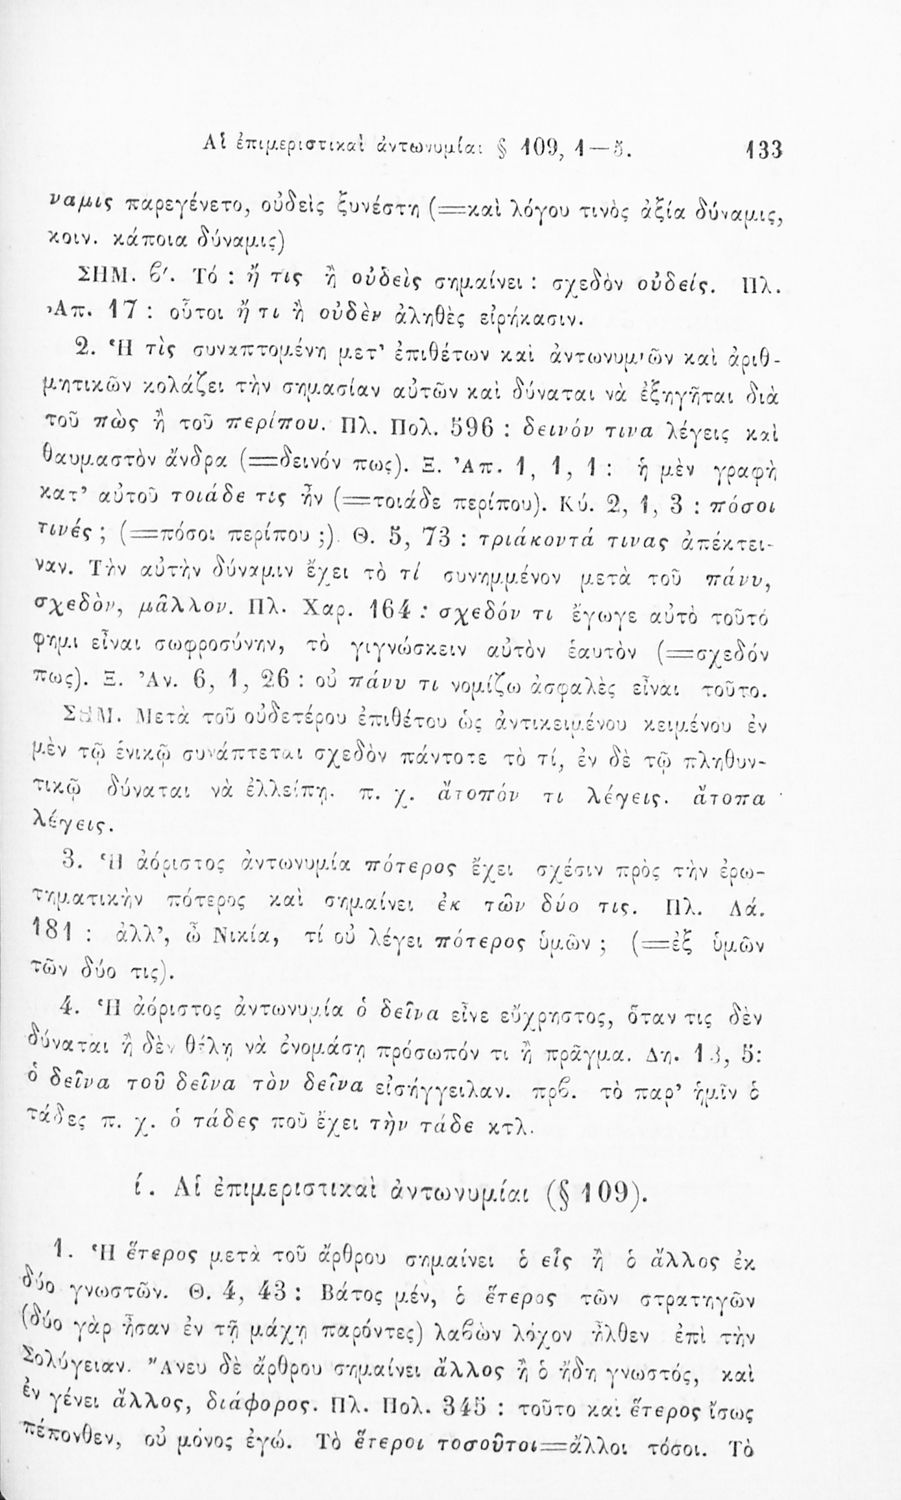 Αἱ ἐπιμεριστικαὶ ἀντωνυμίαι § 109, 1—5. 133
ναμις παρεγένετο, οὐδεὶς ξυνέστη (=καὶ λόγου τινὸς ἀξία δύναμις,
κοιν. κάποια δύναμις)
ΣΗΜ. ϐ′. Τό : ἤ τις ἢ οὐδεὶς σημαίνει : σχεδὸν οὐδείς. Πλ.
Ἀπ. 17 : οὗτοι ἤ τι ἢ οὐδὲν ἀληθὲς εἰρήκασιν.
2. Ἡ τὶς συναπτομένη μετ' ἐπιθέτων καὶ ἀντωνυμιῶν καὶ ἀριθ-
μητικῶν κολάζει τὴν σημασίαν αὐτῶν καὶ δύναται νὰ ἐξηγῆται διὰ
τοῦ πὼς ἢ τοῦ περίπου. Πλ. Πολ. 596 : δεινόν τινα λέγεις καὶ
θαυμαστὸν ἄνδρα (=δεινόν πως). Ξ. Ἀπ. 1, 1, 1 : ἡ μὲν γραφὴ
κατ' αὐτοῦ τοιάδε τις ἦν (=τοιάδε περίπου). Κύ. 2, 1, 3 : πόσοι
τινές ; (=πόσοι περίπου ;). Θ. 5, 73 : τριάκοντά τινας ἀπέκτει-
ναν. Τὴν αὐτὴν δύναμιν ἔχει τὸ τί συνημμένον μετὰ τοῦ πάνυ,
σχεδὸν, μᾶλλον. Πλ. Χαρ. 164 : σχεδόν τι ἔγωγε αὐτὸ τοῦτό
φημι εἶναι σωφροσύνην, τὸ γιγνώσκειν αὐτὸν ἑαυτὸν (=σχεδόν
πως). Ξ. Ἀν. 6, 1, 26 : οὐ πάνυ τι νομίζω ἀσφαλὲς εἶναι τοῦτο.
ΣΗΜ. Μετὰ τοῦ οὐδετέρου ἐπιθέτου ὡς ἀντικειμένου κειμένου ἐν
μὲν τῷ ἑνικῷ συνάπτεται σχεδὸν πάντοτε τὸ τί, ἐν δὲ τῷ πληθυν-
τικῷ δύναται νὰ ἐλλείπῃ· π. χ. ἄτοπόν τι λέγεις. ἄτοπα
λέγεις.
3. Ἡ ἀόριστος ἀντωνυμία πότερος ἔχει σχέσιν πρὸς τὴν ἐρω-
τηματικὴν πότερος καὶ σημαίνει ἐκ τῶν δύο τις. Πλ. Λά.
181 : ἀλλ', ὦ Νικία, τί οὐ λέγει πότερος ὑμῶν ; (=ἐξ ὑμῶν
τῶν δύο τις).
4. Ἡ ἀόριστος ἀντωνυμία ὁ δεῖνα εἶνε εὔχρηστος, ὅταν τις δὲν
δύναται ἢ δὲν θέλῃ νὰ ὀνομάσῃ πρόσωπόν τι ἢ πρᾶγμα. Δη. 13, 5:
ὁ δεῖνα τοῦ δεῖνα τὸν δεῖνα εἰσήγγειλαν. πρϐ. τὸ παρ' ἡμῖν ὁ
τάδες π. χ. ὁ τάδες ποῦ ἔχει τὴν τάδε κτλ.
ί. Αἱ ἐπιμεριστικαὶ ἀντωνυμίαι (§ 109).
1. Ἡ ἕτερος μετὰ τοῦ ἄρθρου σημαίνει ὁ εἷς ἢ ὁ ἄλλος ἐκ
δύο γνωστῶν. Θ. 4, 43 : Βάτος μέν, ὁ ἕτερος τῶν στρατηγῶν
(δύο γὰρ ἦσαν ἐν τῇ μάχῃ παρόντες) λαϐὼν λόχον ἦλθεν ἐπὶ τὴν
Σολύγειαν. Ἄνευ δὲ ἄρθρου σημαίνει ἄλλος ἢ ὁ ἤδη γνωστός, καὶ
ἐν γένει ἄλλος, διάφορος. Πλ. Πολ. 345 : τοῦτο καὶ ἕτερος ἴσως
πέπονθεν, οὐ μόνος ἐγώ. Τὸ ἕτεροι τοσοῦτοι=ἄλλοι τόσοι. Τὸ